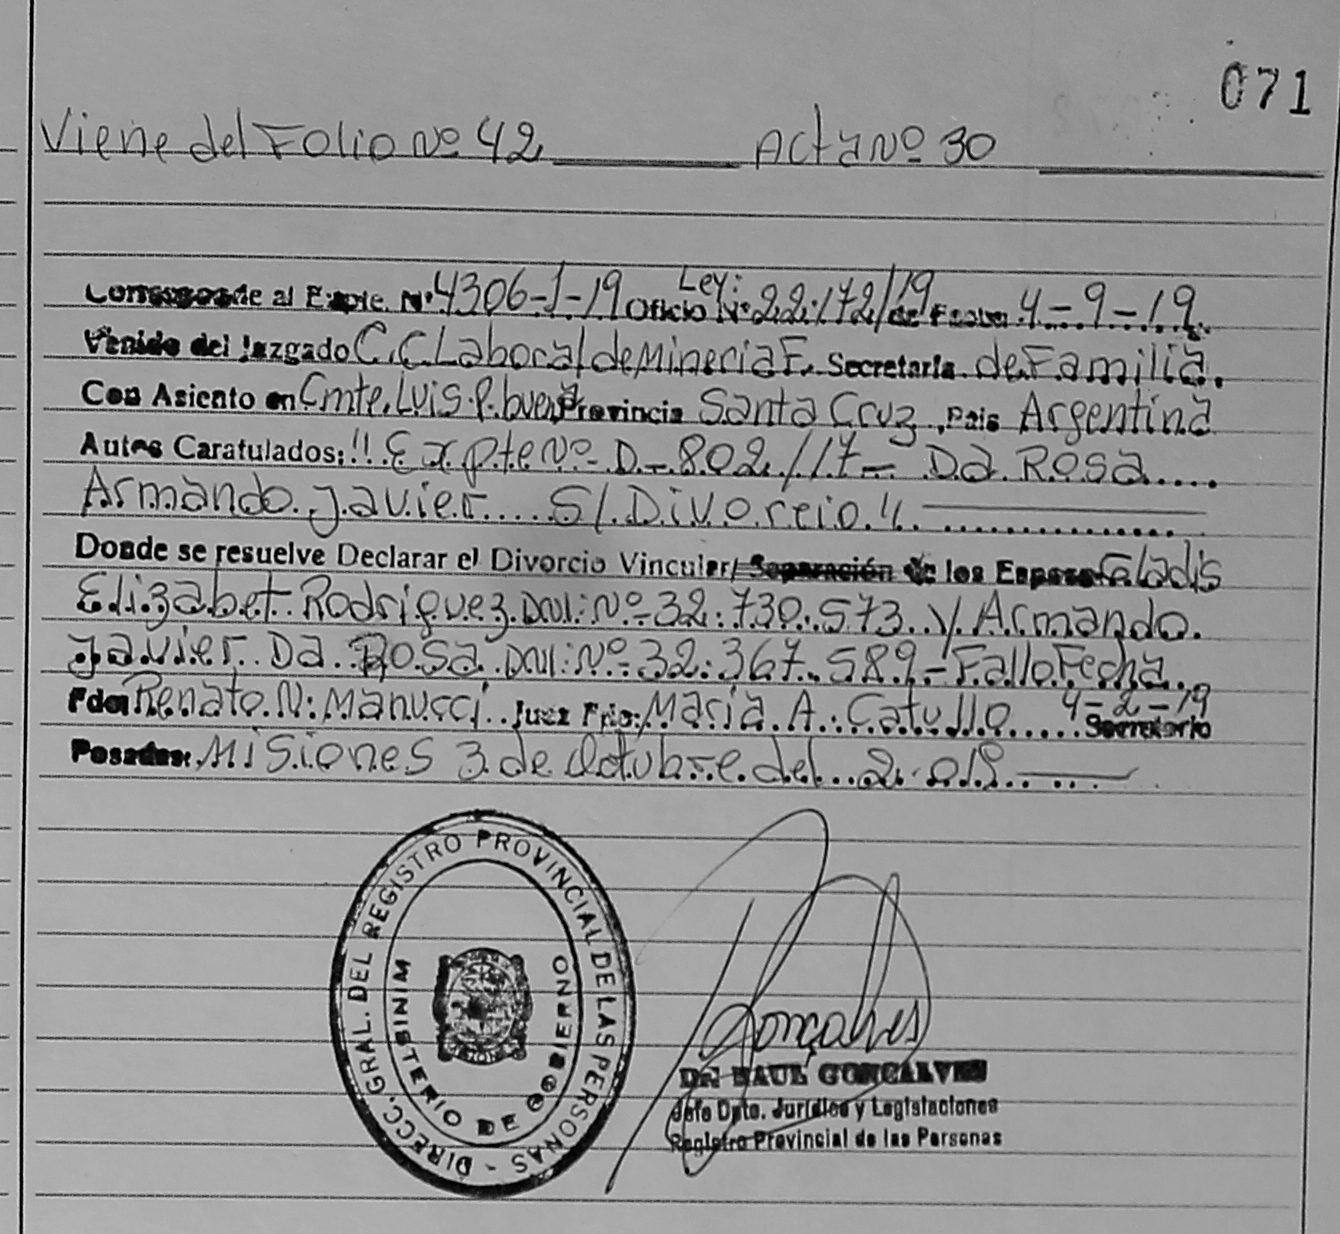 071
Viene del Folio Nº 42 Acta Nº 30
Corresponde al Expte. Nº 4306-1-19 Oficio Nº Ley: 22.172/19 de Fecha 4-9-19.
Venido del Juzgado C.C Laboral de Mineria F. Secretaría de Familia.
Con Asiento en Cmte. Luis P. buena Provincia Santa Cruz, País Argentina
Autos Caratulados: "Expte Nº D-802/17- Da Rosa....
Armando Javier..... S/.Divorcio"
Donde se resuelve Declarar el Divorcio Vincular/ Separación de los Esposos Gladis
Elizabet Rodriguez DNI: Nº 32.730.573. y Armando.
Javier Da Rosa DNI: Nº 32.367.589- Fallo Fecha
Fdo: Renato. N. Manucci. Juez Frio: Maria. A. Catullo..... 4-2-19 Secretorio
Posadas: Misiones 3 de Octubre del 2.019
DIRECC. GRAL. DEL REGISTRO PROVINCIAL DE LAS PERSONAS -
MINISTERIO DE GOBIERNO
Gonçalves
DR. RAUL GONCALVES
Jefe Dpto. Jurídico y Legislaciones
Registro Provincial de las Personas